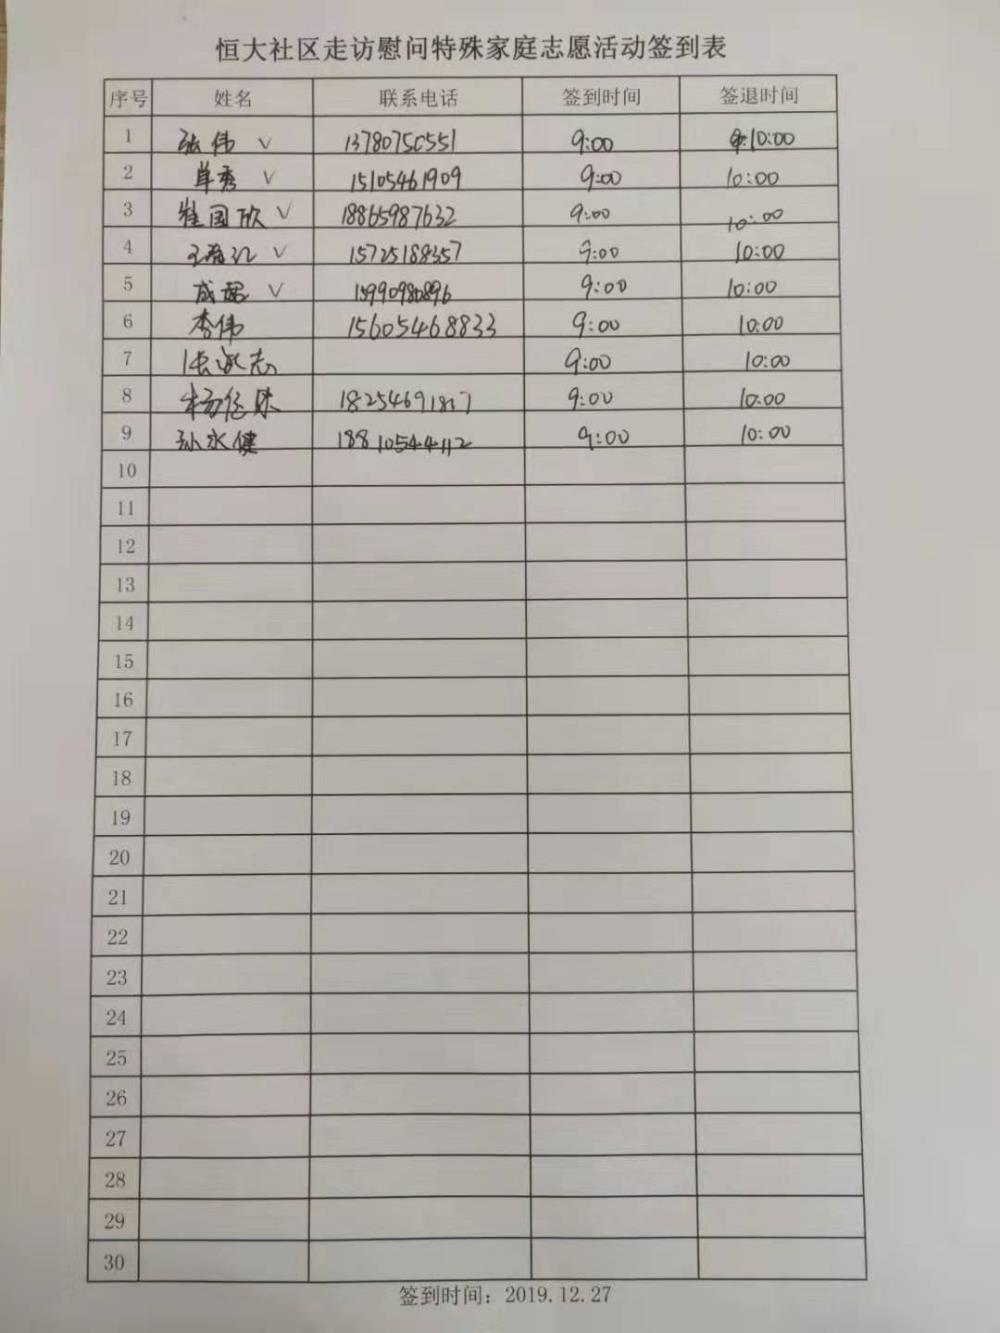 恒大社区走访慰问特殊家庭志愿活动签到表
序号 姓名 联系电话 签到时间 签退时间
1 张伟 √ 13780750551 9:00 10:00
2 单秀 √ 15105461909 9:00 10:00
3 崔国欣 √ 18865987632 9:00 10:00
4 √ 15725188357 9:00 10:00
5 √ 15990980896 9:00 10:00
6 李伟 15605468833 9:00 10:00
7 9:00 10:00
8 9:00 10:00
9 孙永健 18810544112 9:00 10:00
10
11
12
13
14
15
16
17
18
19
20
21
22
23
24
25
26
27
28
29
30
签到时间：2019.12.27